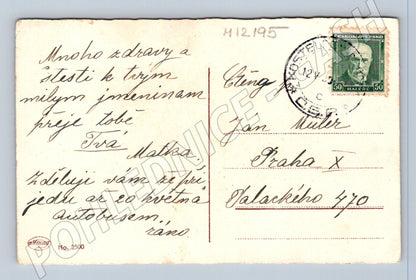 M12195
Mnoho zdraví a
štěstí k tvým
milým jmeninám
přeje tobě
Tvá
Matka
Zděluji vám že při
jedu až 20 května
autobusem.
ráno
Ctěný
Jan
Praha X
Palackého 470
ČESKOSLOVENSKO
50 HALÉŘŮ 50
No. 2500
POHLEDNICE